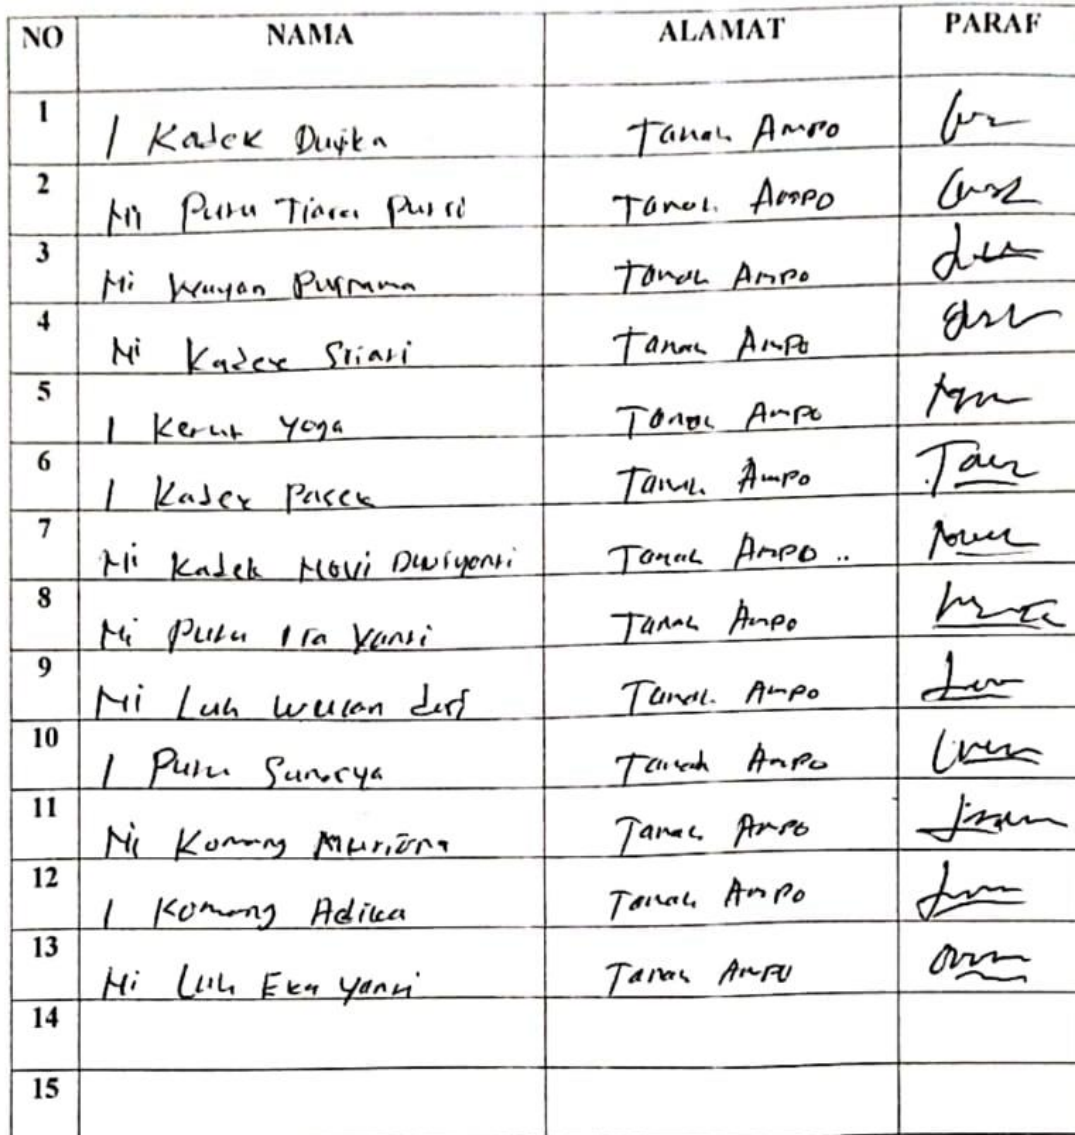 NO NAMA ALAMAT PARAF
1 I Kadek Dwika Tanah Ampo
2 Ni Putu Tiara Putri Tanah Ampo
3 Ni Wayan Purnama Tanah Ampo
4 Ni Kadek Sriasi Tanah Ampo
5 I Ketut Yoga Tanah Ampo
6 I Kadek Pasek Tanah Ampo
7 Ni Kadek Novi Dwiyanti Tanah Ampo ..
8 Ni Putu Ita Yanti Tanah Ampo
9 Ni Luh Wulan Tanah Ampo
10 I Putu Tanah Ampo
11 Ni Komang Tanah Ampo
12 I Komang Adika Tanah Ampo
13 Ni Luh Eka Yanti Tanah Ampo
14
15